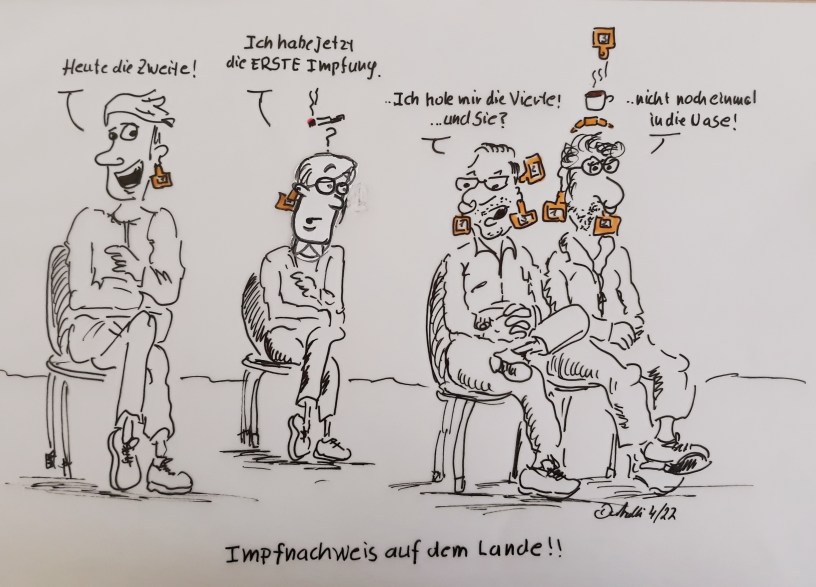 Heute die Zweite!
Ich habe jetzt
die ERSTE Impfung.
?
..Ich hole mir die Vierte!
...und Sie?
..nicht noch einmal
in die Nase!
4/22
Impfnachweis auf dem Lande!!